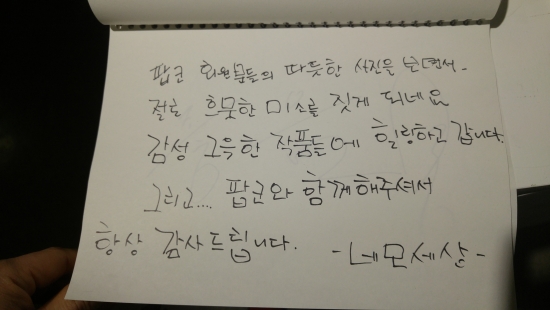 팝코 회원분들의 따뜻한 사진을 보면서-
절로 흐뭇한 미소를 짓게 되네요
감성 그윽한 작품들에 힐링하고 갑니다.
그리고.... 팝코와 함께해주셔서
항상 감사드립니다. -네모세상-